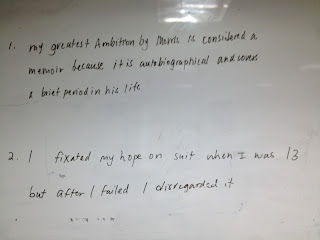 1. my greatest Ambition by Morris is considered a
memoir because it is autobiographical and covers
a brief period in his life
2. I fixated my hope on suit when I was 13
but after I failed I disregarded it